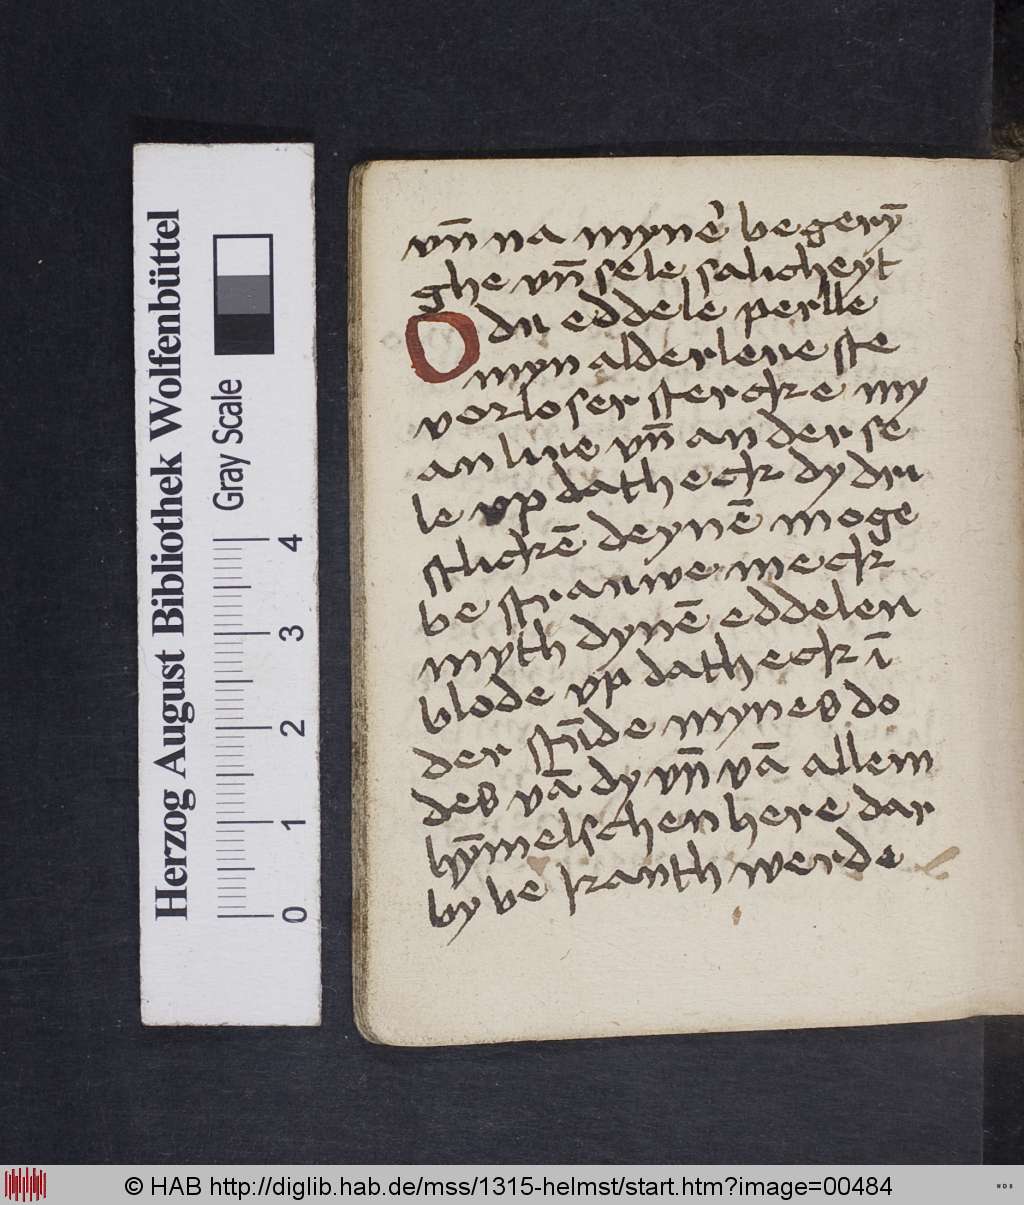 vn̄ na mynē begerȳ
ghe vn̄ sele salicheyt
O du eddele perlle
myn alderleueste
vorloser stercke my
an liue vn̄ an der se
le vp dath eck dy dru
stlickē deynē moge
bestrauwe meck
myth dynē eddelen
blode vp dath eck ī
der stūde mynes do
des vā dy vn̄ vā allem
hȳmelschen here dar
by bekanth werde
Herzog August Bibliothek Wolfenbüttel
Gray Scale
0 1 2 3 4
© HAB http://diglib.hab.de/mss/1315-helmst/start.htm?image=00484